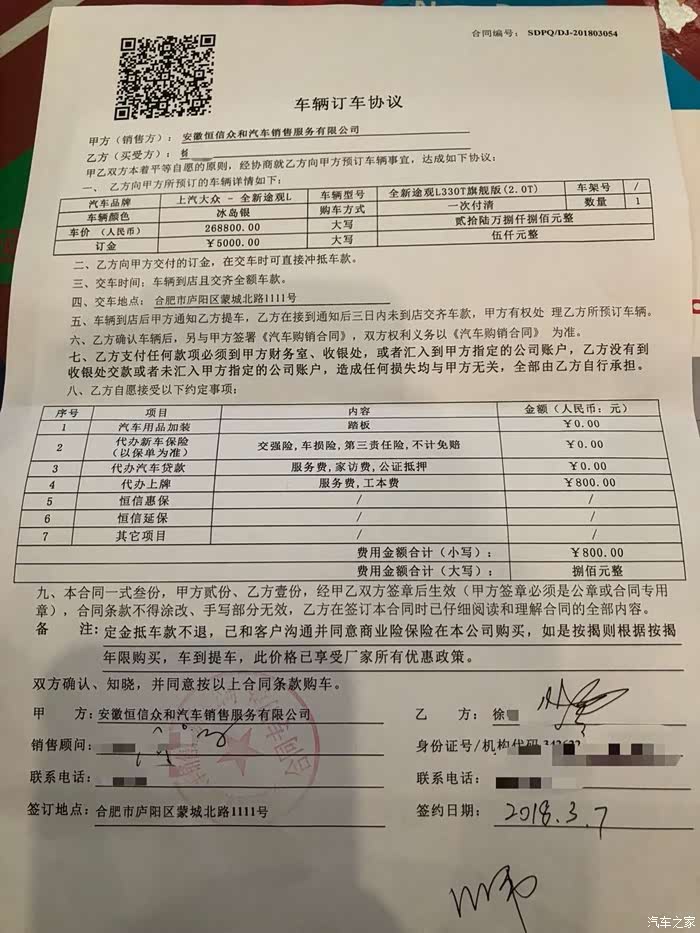 合同编号: SDPQ/DJ-201803054
车辆订车协议
甲方（销售方）: 安徽恒信众和汽车销售服务有限公司
乙方（买受方）:
甲乙双方本着平等自愿的原则，经协商就乙方向甲方预订车辆事宜，达成如下协议:
一、 乙方向甲方所预订的车辆详情如下:
汽车品牌 上汽大众 - 全新途观L 车辆型号 全新途观L330T旗舰版(2.0T) 车架号 /
车辆颜色 冰岛银 购车方式 一次付清 数量 1
车价（人民币） 268800.00 大写 贰拾陆万捌仟捌佰元整
订金 ￥5000.00 大写 伍仟元整
二、乙方向甲方交付的订金，在交车时可直接冲抵车款。
三、交车时间: 车辆到店且交齐全额车款。
四、交车地点: 合肥市庐阳区蒙城北路1111号
五、车辆到店后甲方通知乙方提车，乙方在接到通知后三日内未到店交齐车款，甲方有权处 理乙方所预订车辆。
六、乙方确认车辆后，另与甲方签署《汽车购销合同》，双方权利义务以《汽车购销合同》 为准。
七、乙方支付任何款项必须到甲方财务室、收银处，或者汇入到甲方指定的公司账户，乙方没有到
收银处交款或者未汇入甲方指定的公司账户，造成任何损失均与甲方无关，全部由乙方自行承担。
八、乙方自愿接受以下约定事项:
序号 项目 内容 金额（人民币: 元）
1 汽车用品加装 踏板 ￥0.00
2 代办新车保险（以保单为准） 交强险,车损险,第三责任险,不计免赔 ￥0.00
3 代办汽车贷款 服务费,家访费,公证抵押 ￥0.00
4 代办上牌 服务费,工本费 ￥800.00
5 恒信惠保 / /
6 恒信延保 / /
7 其它项目 / /
费用金额合计（小写）: ￥800.00
费用金额合计（大写）: 捌佰元整
九、本合同一式叁份，甲方贰份、乙方壹份，经甲乙双方签章后生效（甲方签章必须是公章或合同专用
章），合同条款不得涂改、手写部分无效，乙方在签订本合同时已仔细阅读和理解合同的全部内容。
备 注: 定金抵车款不退，已和客户沟通并同意商业险保险在本公司购买，如是按揭则根据按揭
年限购买，车到提车，此价格已享受厂家所有优惠政策。
双方确认、知晓，并同意按以上合同条款购车。
甲 方: 安徽恒信众和汽车销售服务有限公司 乙 方: 徐
销售顾问: 身份证号/机构代码
联系电话: 联系电话:
签订地点: 合肥市庐阳区蒙城北路1111号 签约日期: 2018.3.7
汽车之家